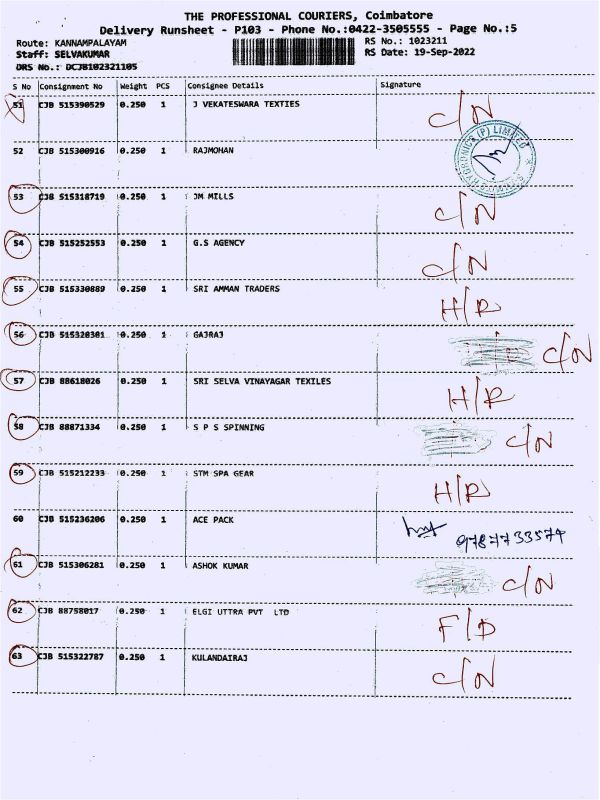 THE PROFESSIONAL COURIERS, Coimbatore
Delivery Runsheet - P103 - Phone No.:0422-3505555 - Page No.:5
Route: KANNAMPALAYAM RS No.: 1023211
Staff: SELVAKUMAR RS Date: 19-Sep-2022
DRS No.: DCJB102321105
S No Consignment No Weight PCS Consignee Details Signature
51 CJB 515390529 0.250 1 J VEKATESWARA TEXTIES C/N
52 CJB 515300916 0.250 1 RAJMOHAN
53 CJB 515318719 0.250 1 JM MILLS C/N
54 CJB 515252553 0.250 1 G.S AGENCY C/N
55 CJB 515330889 0.250 1 SRI AMMAN TRADERS H/R
56 CJB 515320301 0.250 1 GAJRAJ C/N
57 CJB 88618026 0.250 1 SRI SELVA VINAYAGAR TEXILES H/R
58 CJB 88871334 0.250 1 S P S SPINNING C/N
59 CJB 515212233 0.250 1 STM SPA GEAR H/R
60 CJB 515236206 0.250 1 ACE PACK 9787733574
61 CJB 515306281 0.250 1 ASHOK KUMAR C/N
62 CJB 88758017 0.250 1 ELGI UTTRA PVT LTD F/D
63 CJB 515322787 0.250 1 KULANDAIRAJ C/N